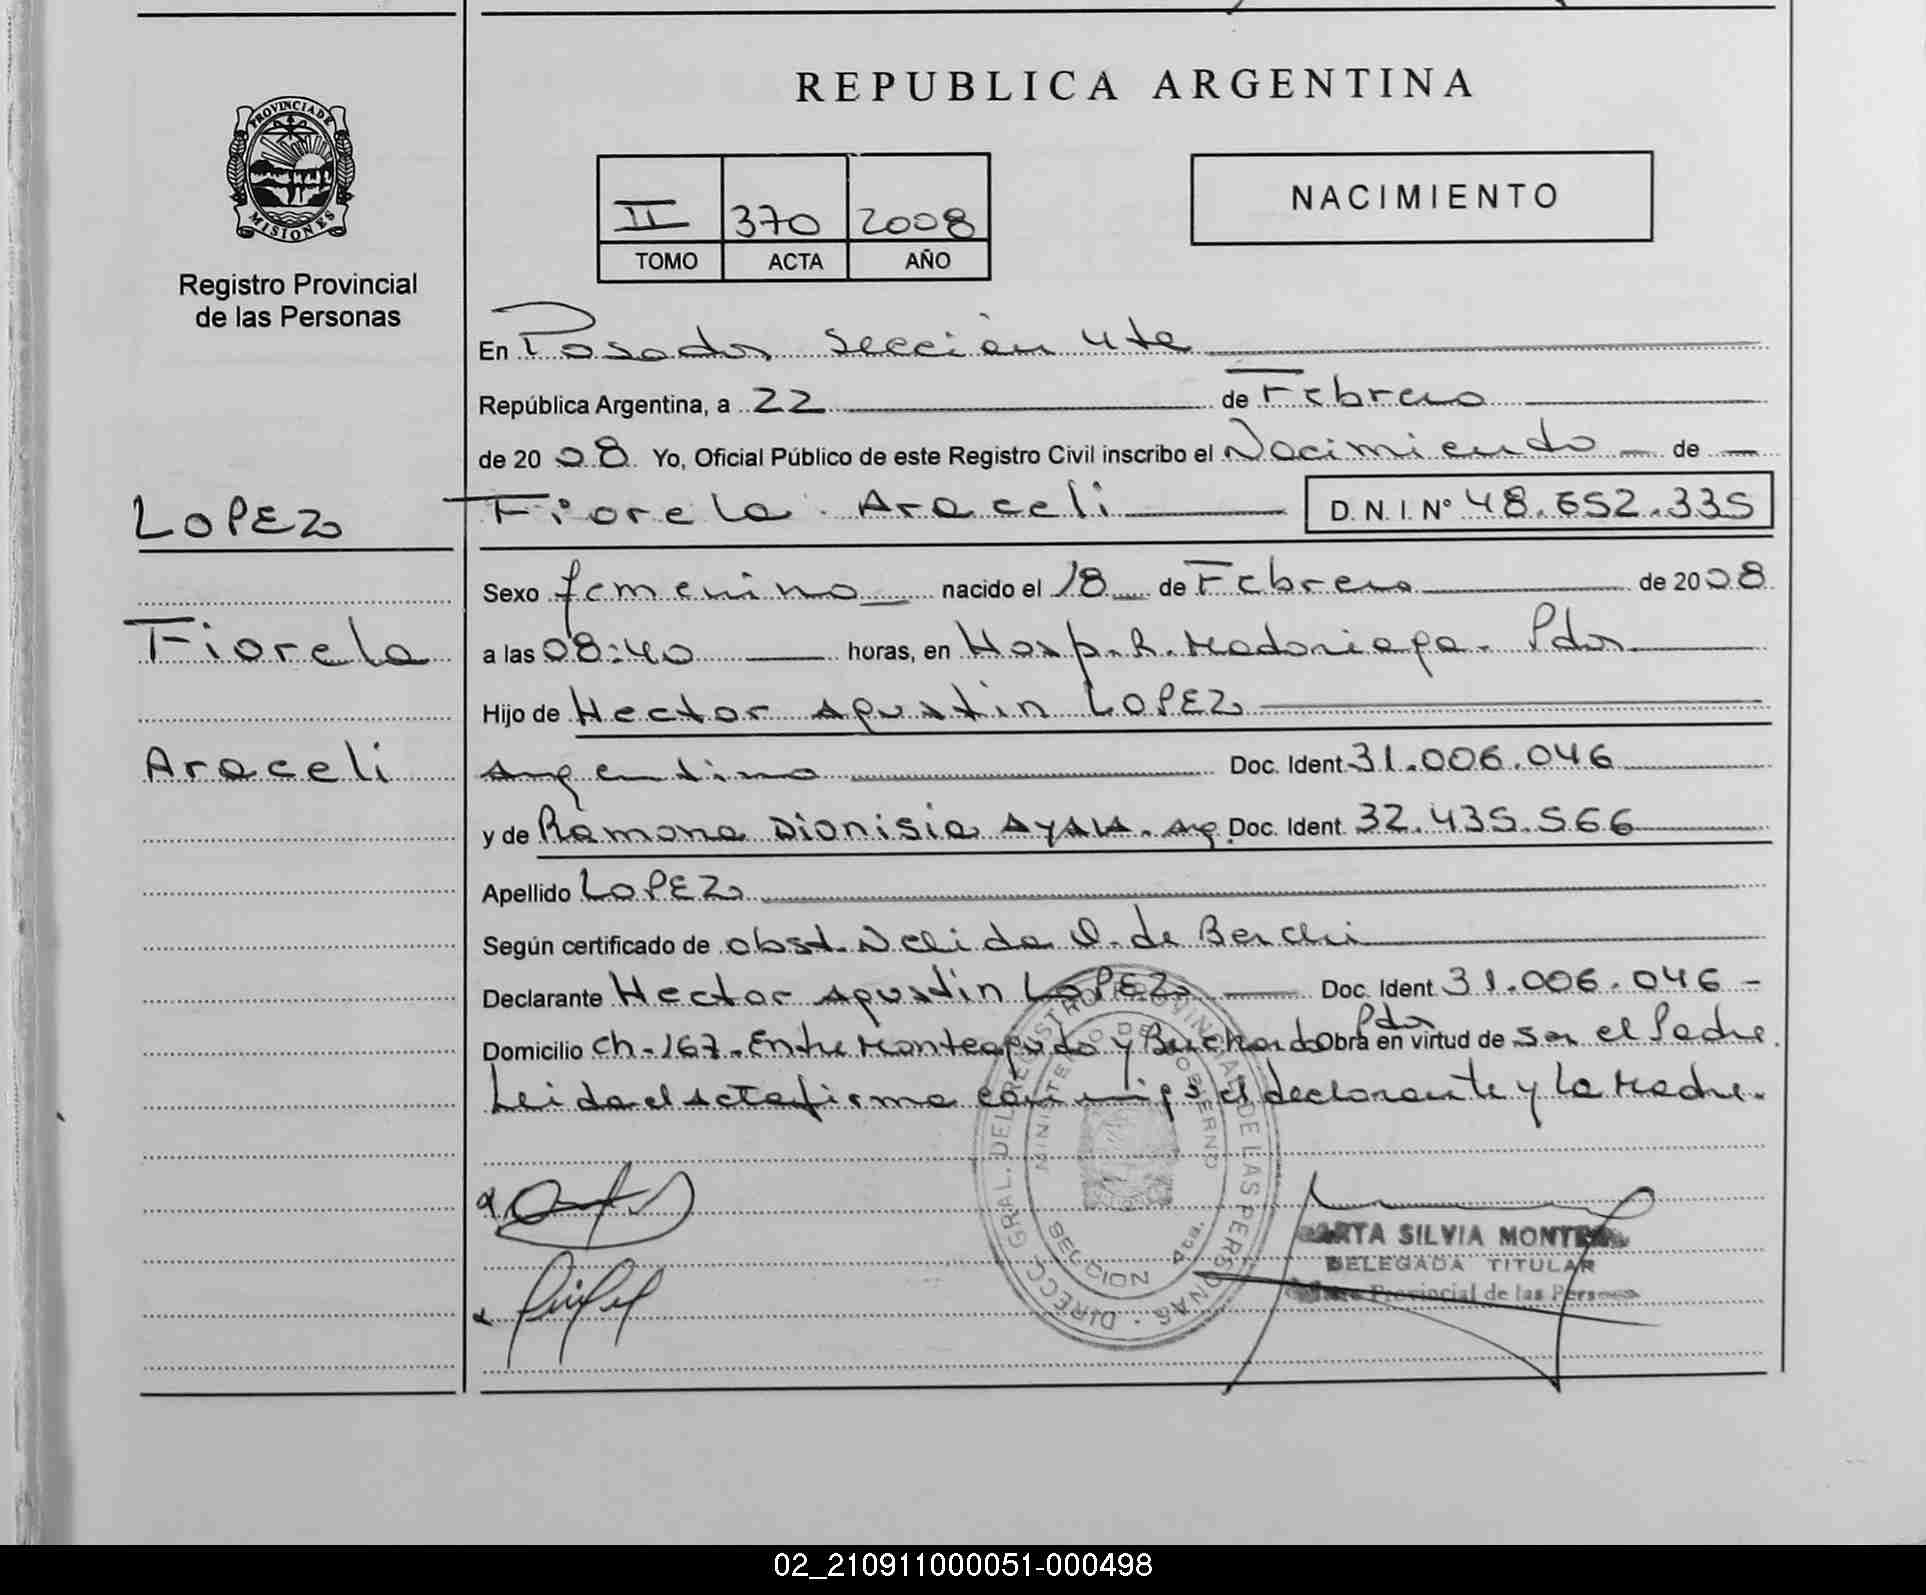 REPUBLICA ARGENTINA
PROVINCIA DE
MISIONES
Registro Provincial
de las Personas
II 370 2008
TOMO ACTA AÑO
NACIMIENTO
En Posadas sección 4ta
República Argentina, a 22 de Febrero
de 2008 Yo, Oficial Público de este Registro Civil inscribo el Nacimiento de
LOPEZ
Fiorela Araceli D.N.I. Nº 48.652.335
Sexo femenino nacido el 18 de Febrero de 2008
Fiorela
a las 08:40 horas, en Hosp. R. Madariaga - Pdas
Hijo de Hector Agustin LOPEZ
Araceli
Argentino Doc. Ident. 31.006.046
y de Ramona Dionisia AYALA. Arg. Doc. Ident. 32.435.566
Apellido LOPEZ
Según certificado de obst. Nelida O. de Berchi
Declarante Hector Agustin LOPEZ Doc. Ident. 31.006.046 -
Domicilio Ch-167. Entre Monteagudo y Buchardo Pdas Obra en virtud de ser el Padre.
Leida el acta firma conmigo el declarante y la Madre.
DIRECC. GRAL. DEL REGISTRO PROVINCIAL DE LAS PERSONAS
MINISTERIO DE GOBIERNO
SECCION 4ta.
SILVIA
DELEGADA TITULAR
Provincial de las
02_210911000051-000498